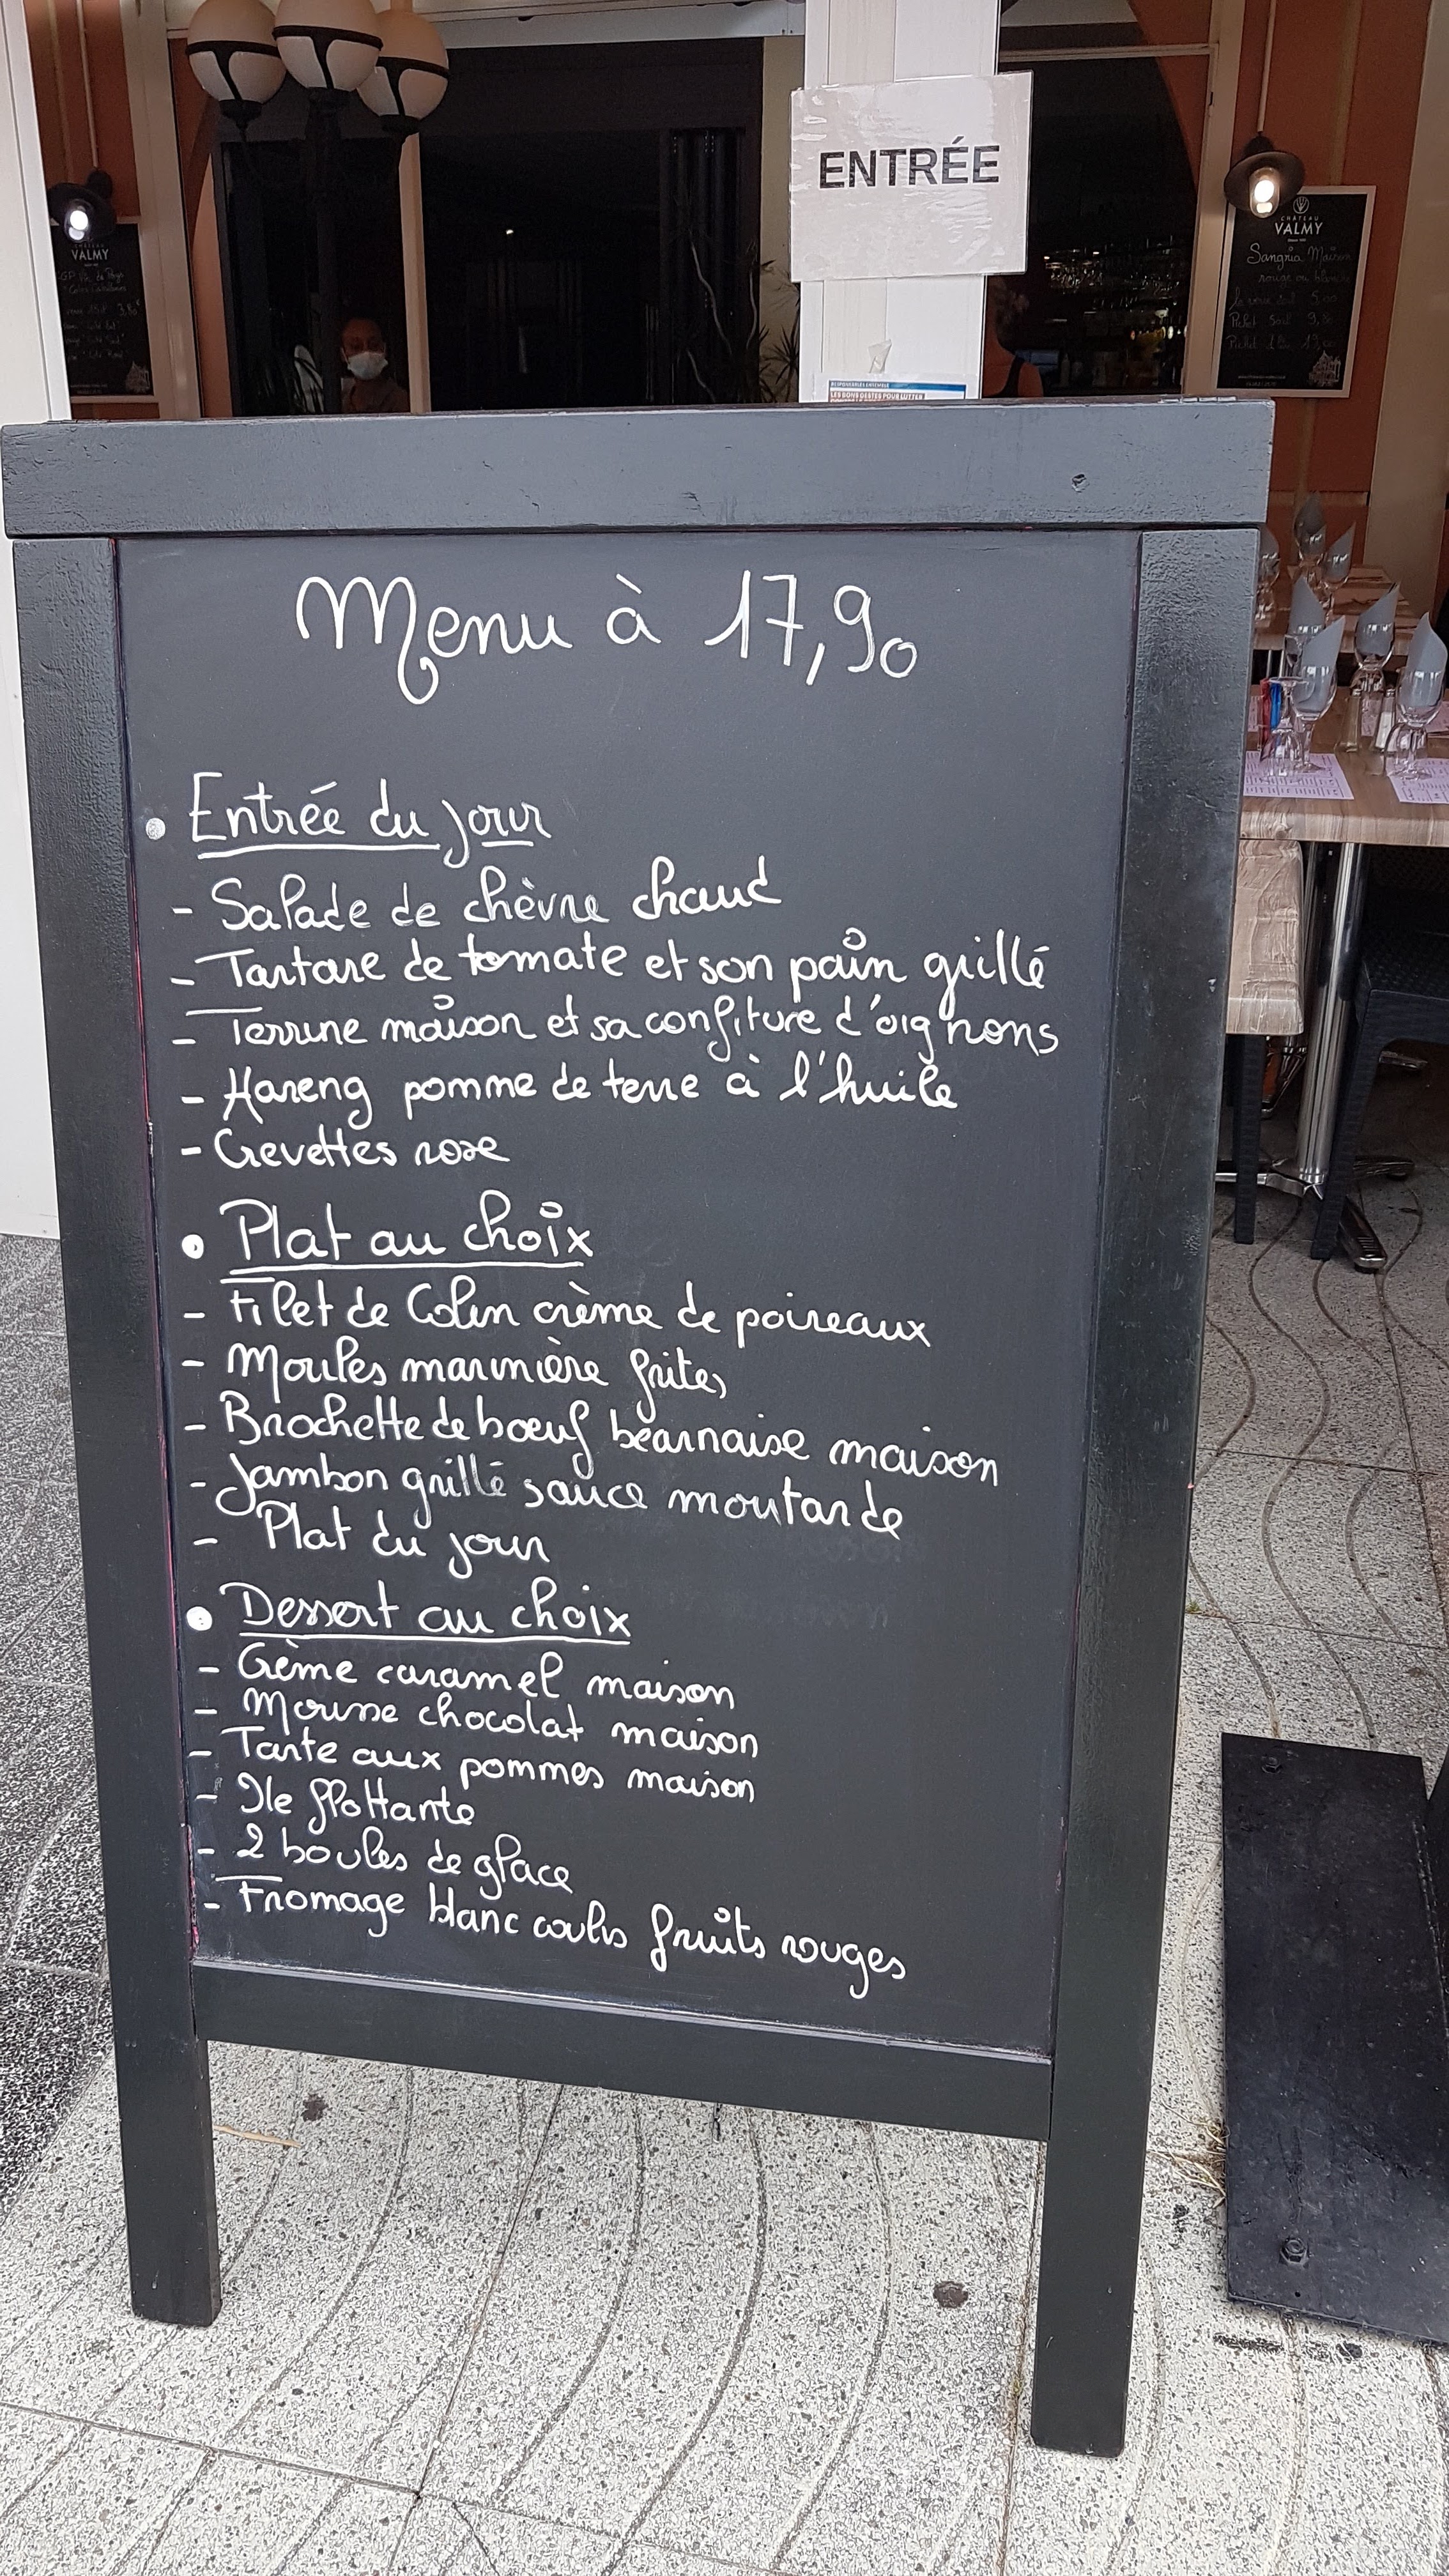 ENTRÉE
CHÂTEAU
VALMY
Sangria Maison
rouge ou blanche
Pichet 50cl
CHÂTEAU
VALMY
3,80
RESPONSABLES ENSEMBLE
LES BONS GESTES POUR LUTTER
Menu à 17,90
• Entrée du jour
- Salade de chèvre chaud
- Tartare de tomate et son pain grillé
- Terrine maison et sa confiture d'oignons
- Hareng pomme de terre à l'huile
- Crevettes rose
• Plat au choix
- Filet de Colin crème de poireaux
- Moules marinière frites
- Brochette de boeuf béarnaise maison
- Jambon grillé sauce moutarde
- Plat du jour
• Dessert au choix
- Crème caramel maison
- Mousse chocolat maison
- Tarte aux pommes maison
- Ile flottante
- 2 boules de glace
- Fromage blanc coulis fruits rouges